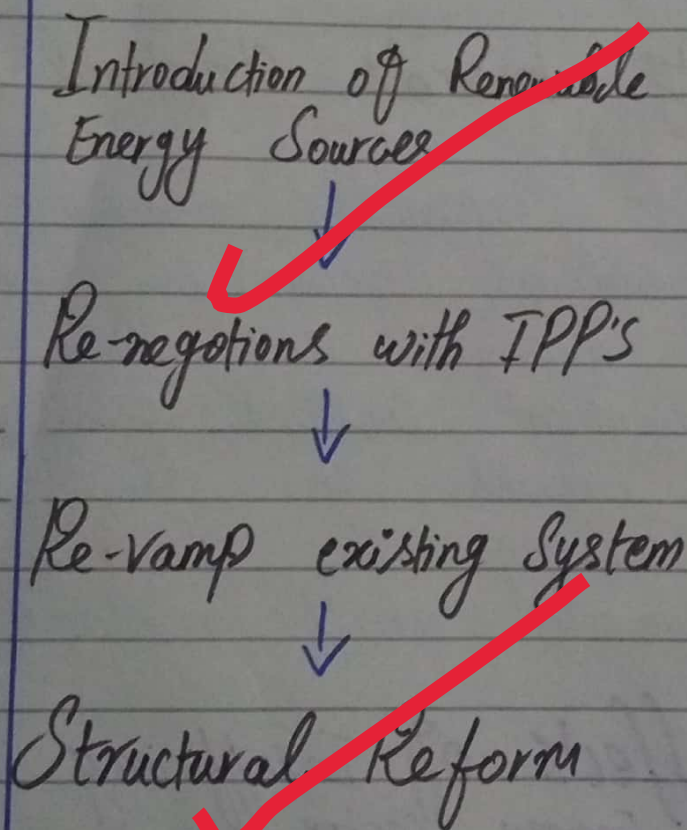 Introduction of Renewable
Energy Sources
↓
Re-negotions with IPP's
↓
Re-vamp existing System
↓
Structural Reform